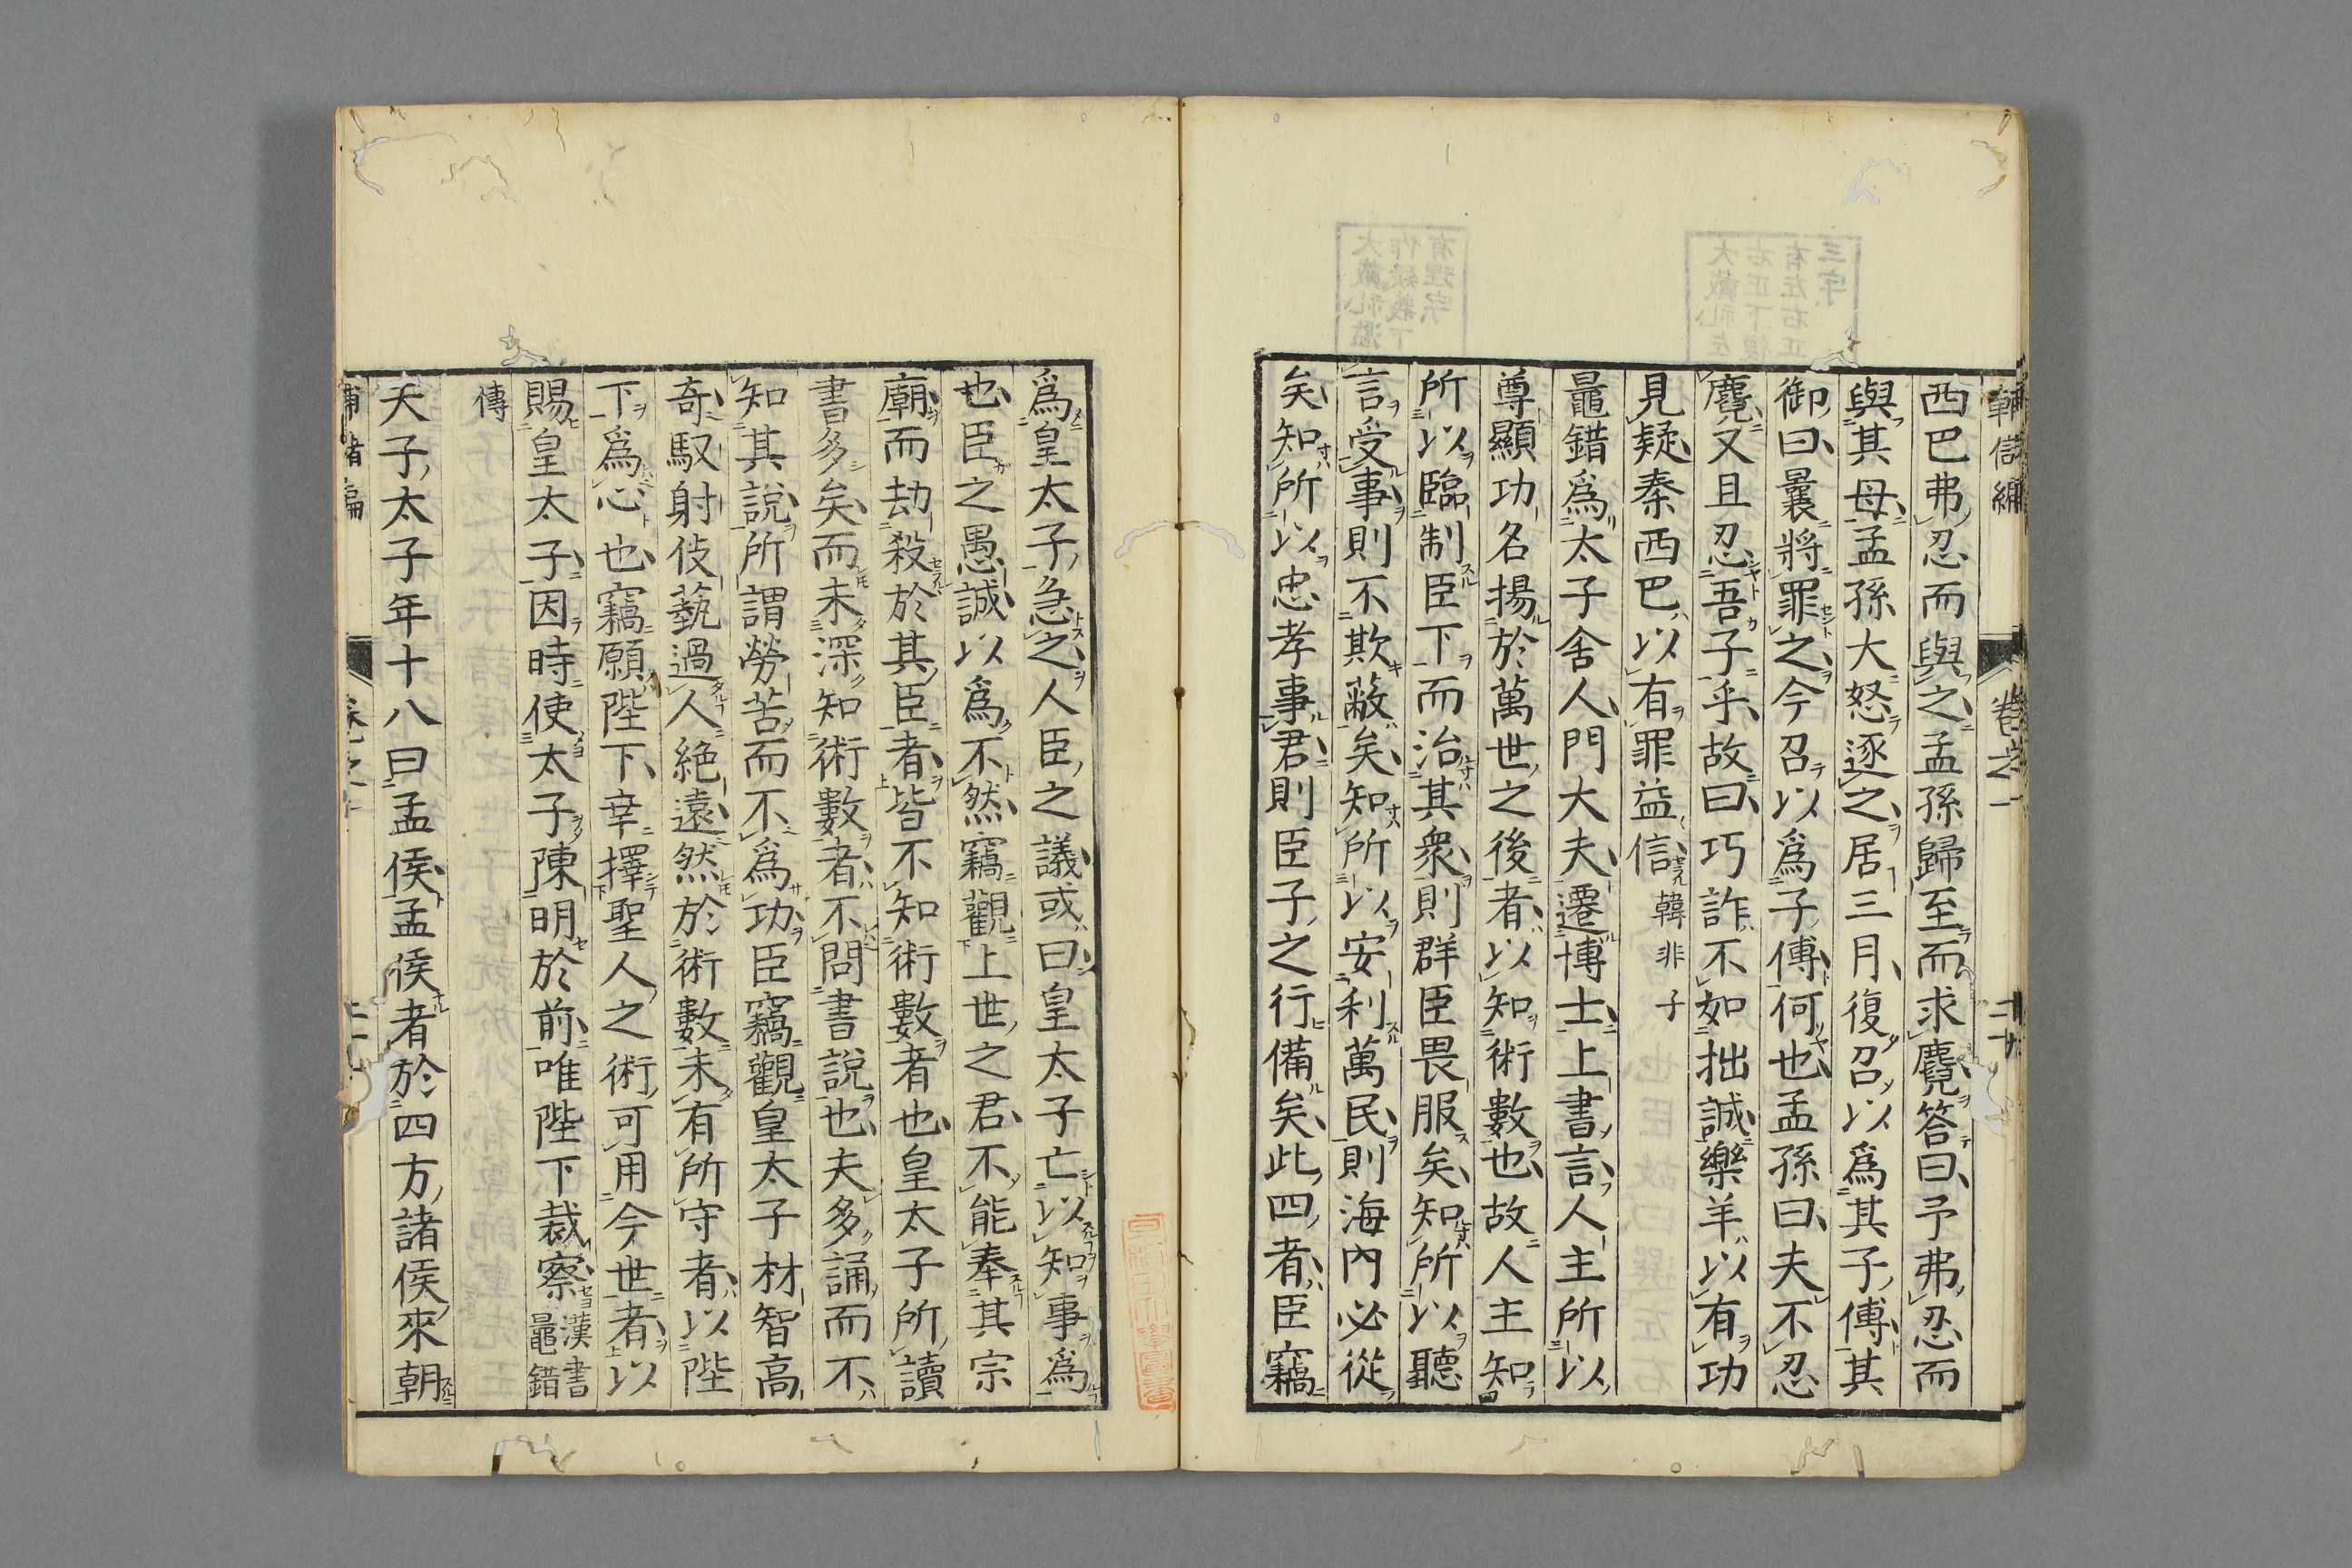 輔儲編 卷之一
西巴弗忍而與之孟孫歸至而求麑答曰予弗忍而
與其母孟孫大怒逐之居三月復召以爲其子傅其
御曰曩將罪之今召以爲子傅何也孟孫曰夫不忍
麑又且忍吾子乎故曰巧詐不如拙誠樂羊以有功
見疑秦西巴以有罪益信韓非子
鼂錯爲太子舍人門大夫遷博士上書言人主所以
尊顯功名揚於萬世之後者以知術數也故人主知
所以臨制臣下而治其衆則群臣畏服矣知所以聽
言受事則不欺蔽矣知所以安利萬民則海內必從
矣知所以忠孝事君則臣子之行備矣此四者臣竊
爲皇太子急之人臣之議或曰皇太子亡以知事爲
也臣之愚誠以爲不然竊觀上世之君不能奉其宗
廟而劫殺於其臣者皆不知術數者也皇太子所讀
書多矣而未深知術數者不問書說也夫多誦而不
知其說所謂勞苦而不爲功臣竊觀皇太子材智高
奇馭射伎藝過人絶遠然於術數未有所守者以陛
下爲心也竊願陛下幸擇聖人之術可用今世者以
賜皇太子因時使太子陳明於前唯陛下裁察漢書鼂錯
傳
天子太子年十八曰孟侯孟侯者於四方諸侯來朝